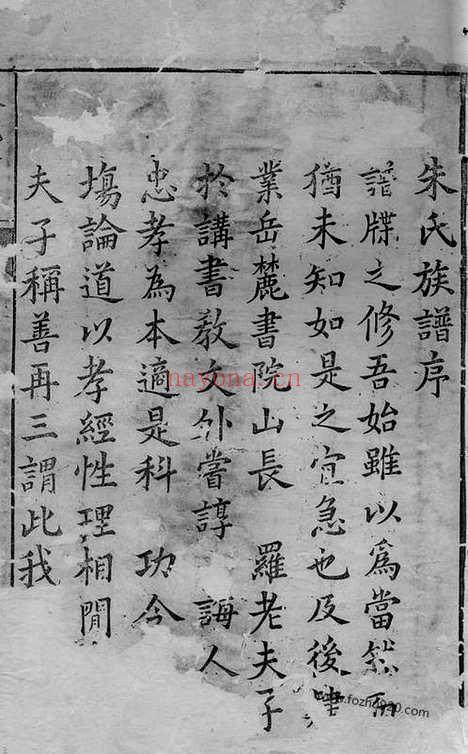 朱氏族譜序
譜牒之修吾始雖以為當然而
猶未知如是之宜急也及後肄
業岳麓書院山長 羅老夫子
於講書教文外嘗諄 誨人
忠孝為本適是科 功令
場論道以孝經性理相間
夫子稱善再三謂此我
nayona.cn
www.fozhu920.com